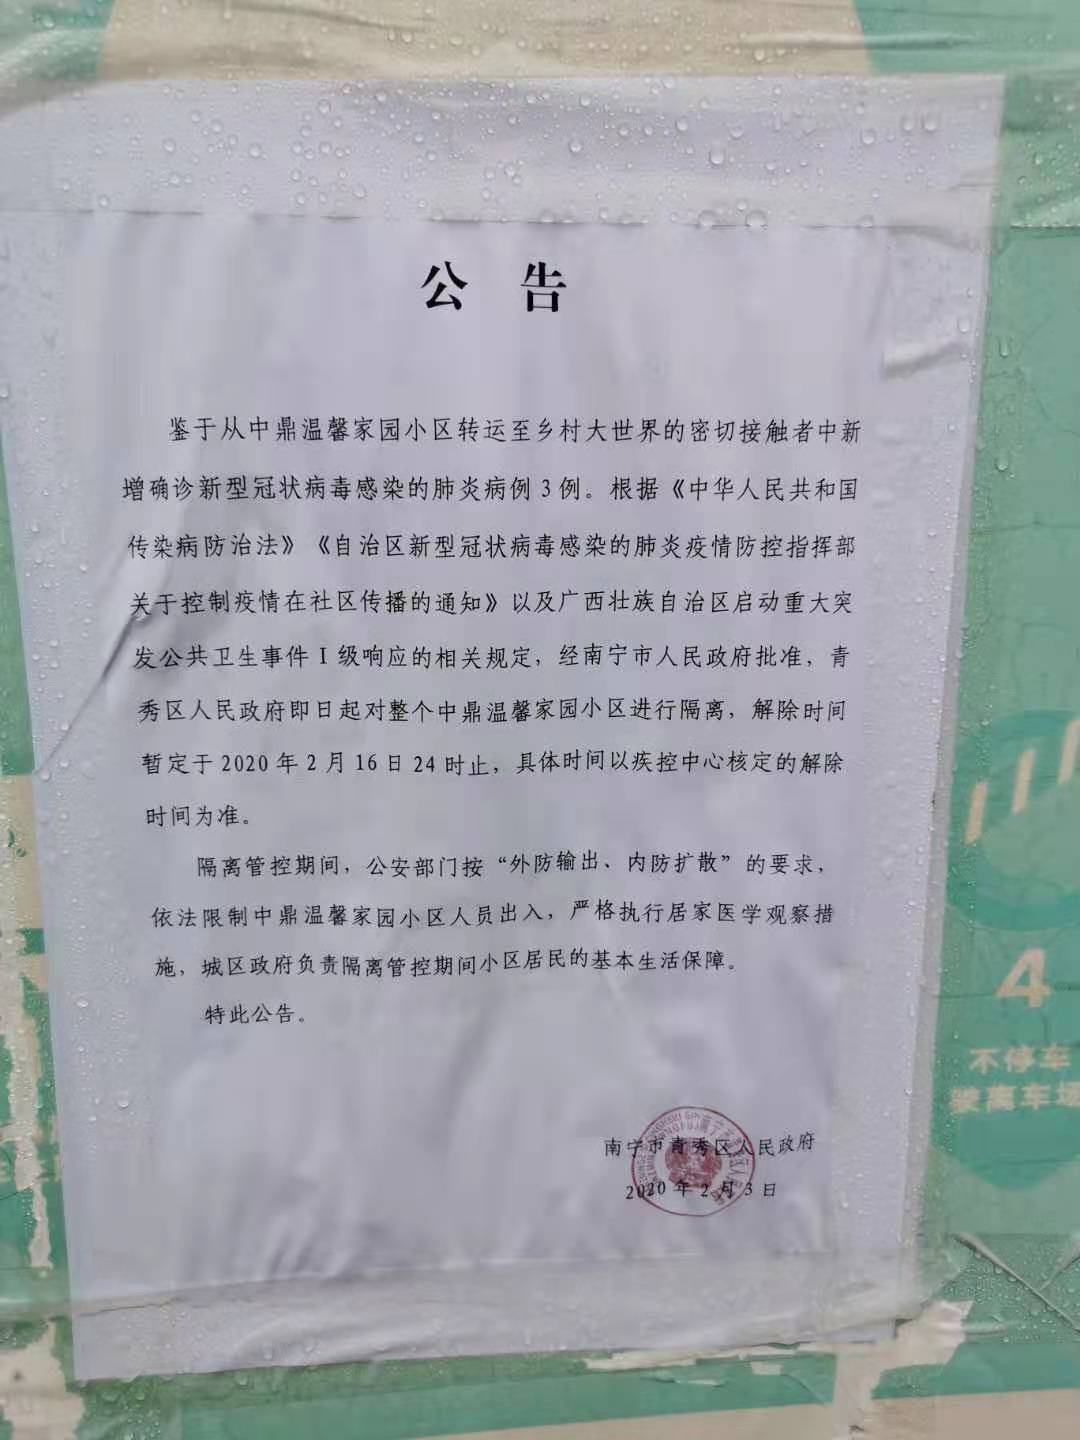 公 告
鉴于从中鼎温馨家园小区转运至乡村大世界的密切接触者中新
增确诊新型冠状病毒感染的肺炎病例3例。根据《中华人民共和国
传染病防治法》《自治区新型冠状病毒感染的肺炎疫情防控指挥部
关于控制疫情在社区传播的通知》以及广西壮族自治区启动重大突
发公共卫生事件I级响应的相关规定，经南宁市人民政府批准，青
秀区人民政府即日起对整个中鼎温馨家园小区进行隔离，解除时间
暂定于2020年2月16日24时止，具体时间以疾控中心核定的解除
时间为准。
隔离管控期间，公安部门按“外防输出、内防扩散”的要求，
依法限制中鼎温馨家园小区人员出入，严格执行居家医学观察措
施，城区政府负责隔离管控期间小区居民的基本生活保障。
特此公告。
南宁市青秀区人民政府
2020年2月3日
4
不停车
驶离车场